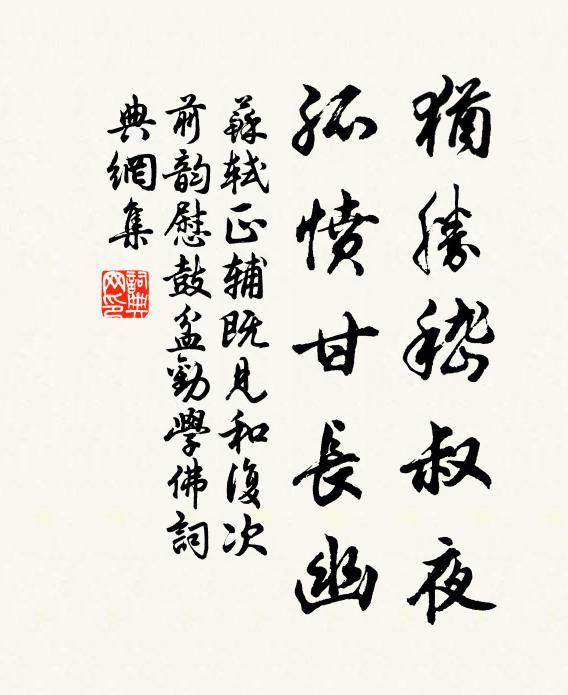 猶勝嵇叔夜
孤憤甘長幽
蘇軾正輔既見和復次
前韵慰鼓盆勸學佛詞
典網集
詞典網印